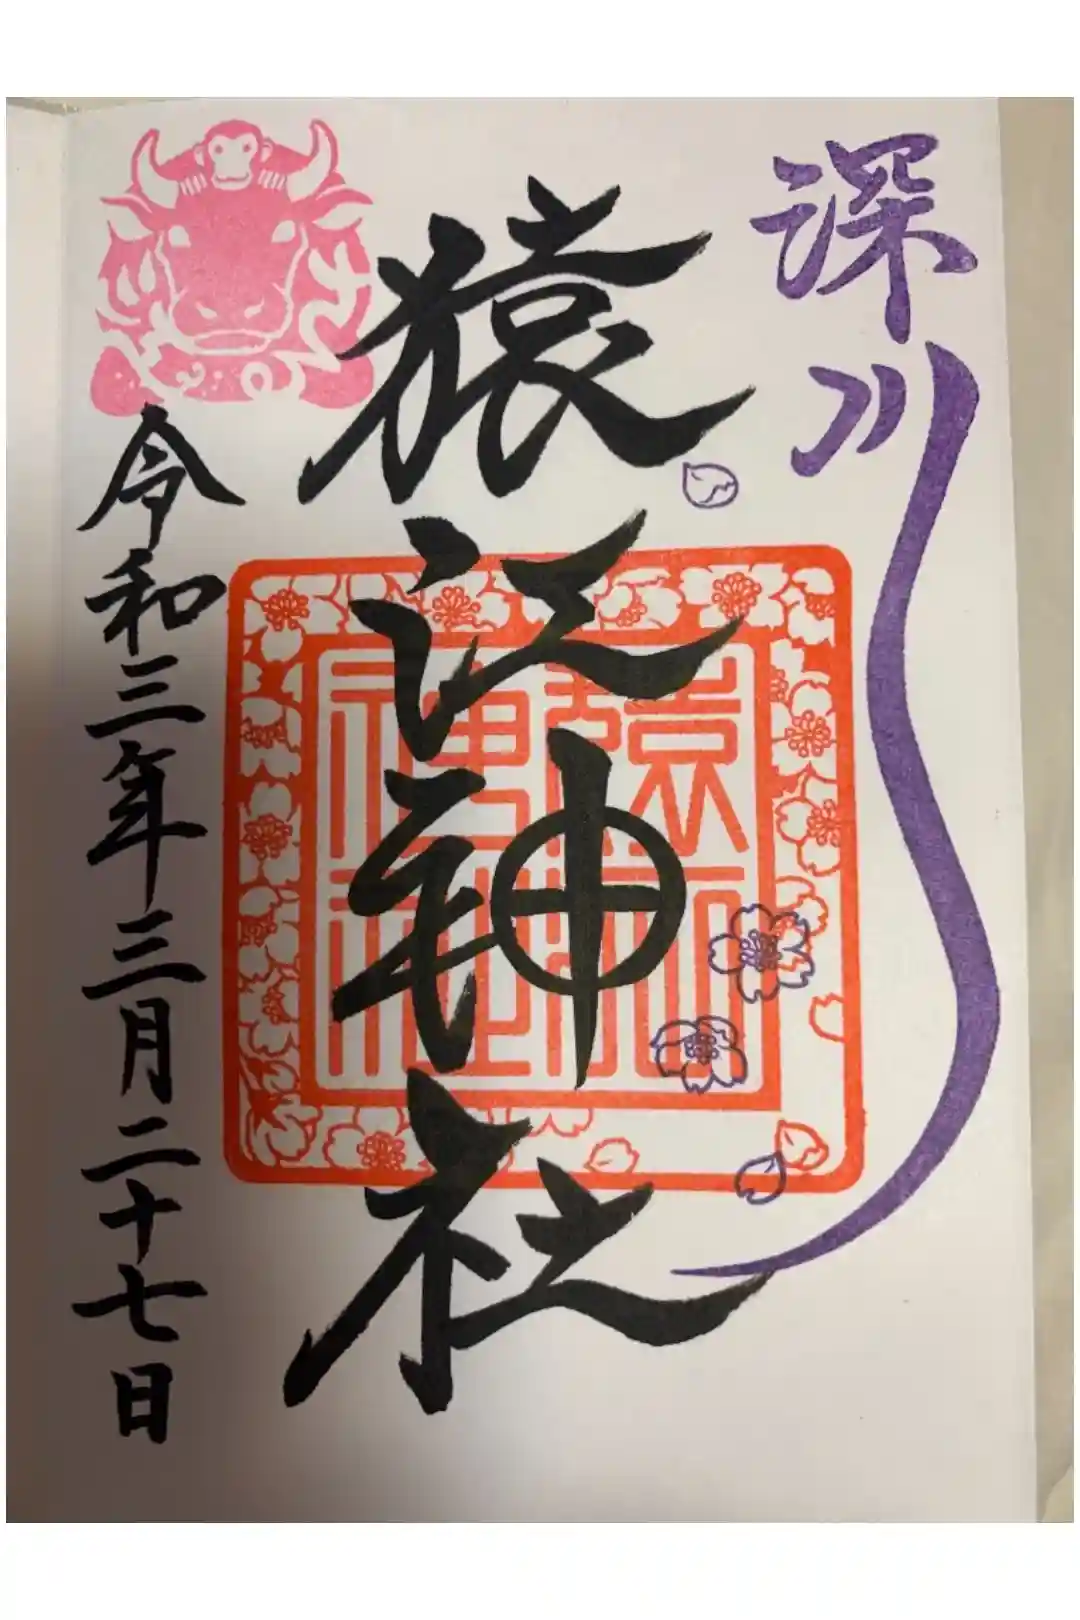 深川
猿江神社
猿江神社
令和三年三月二十七日